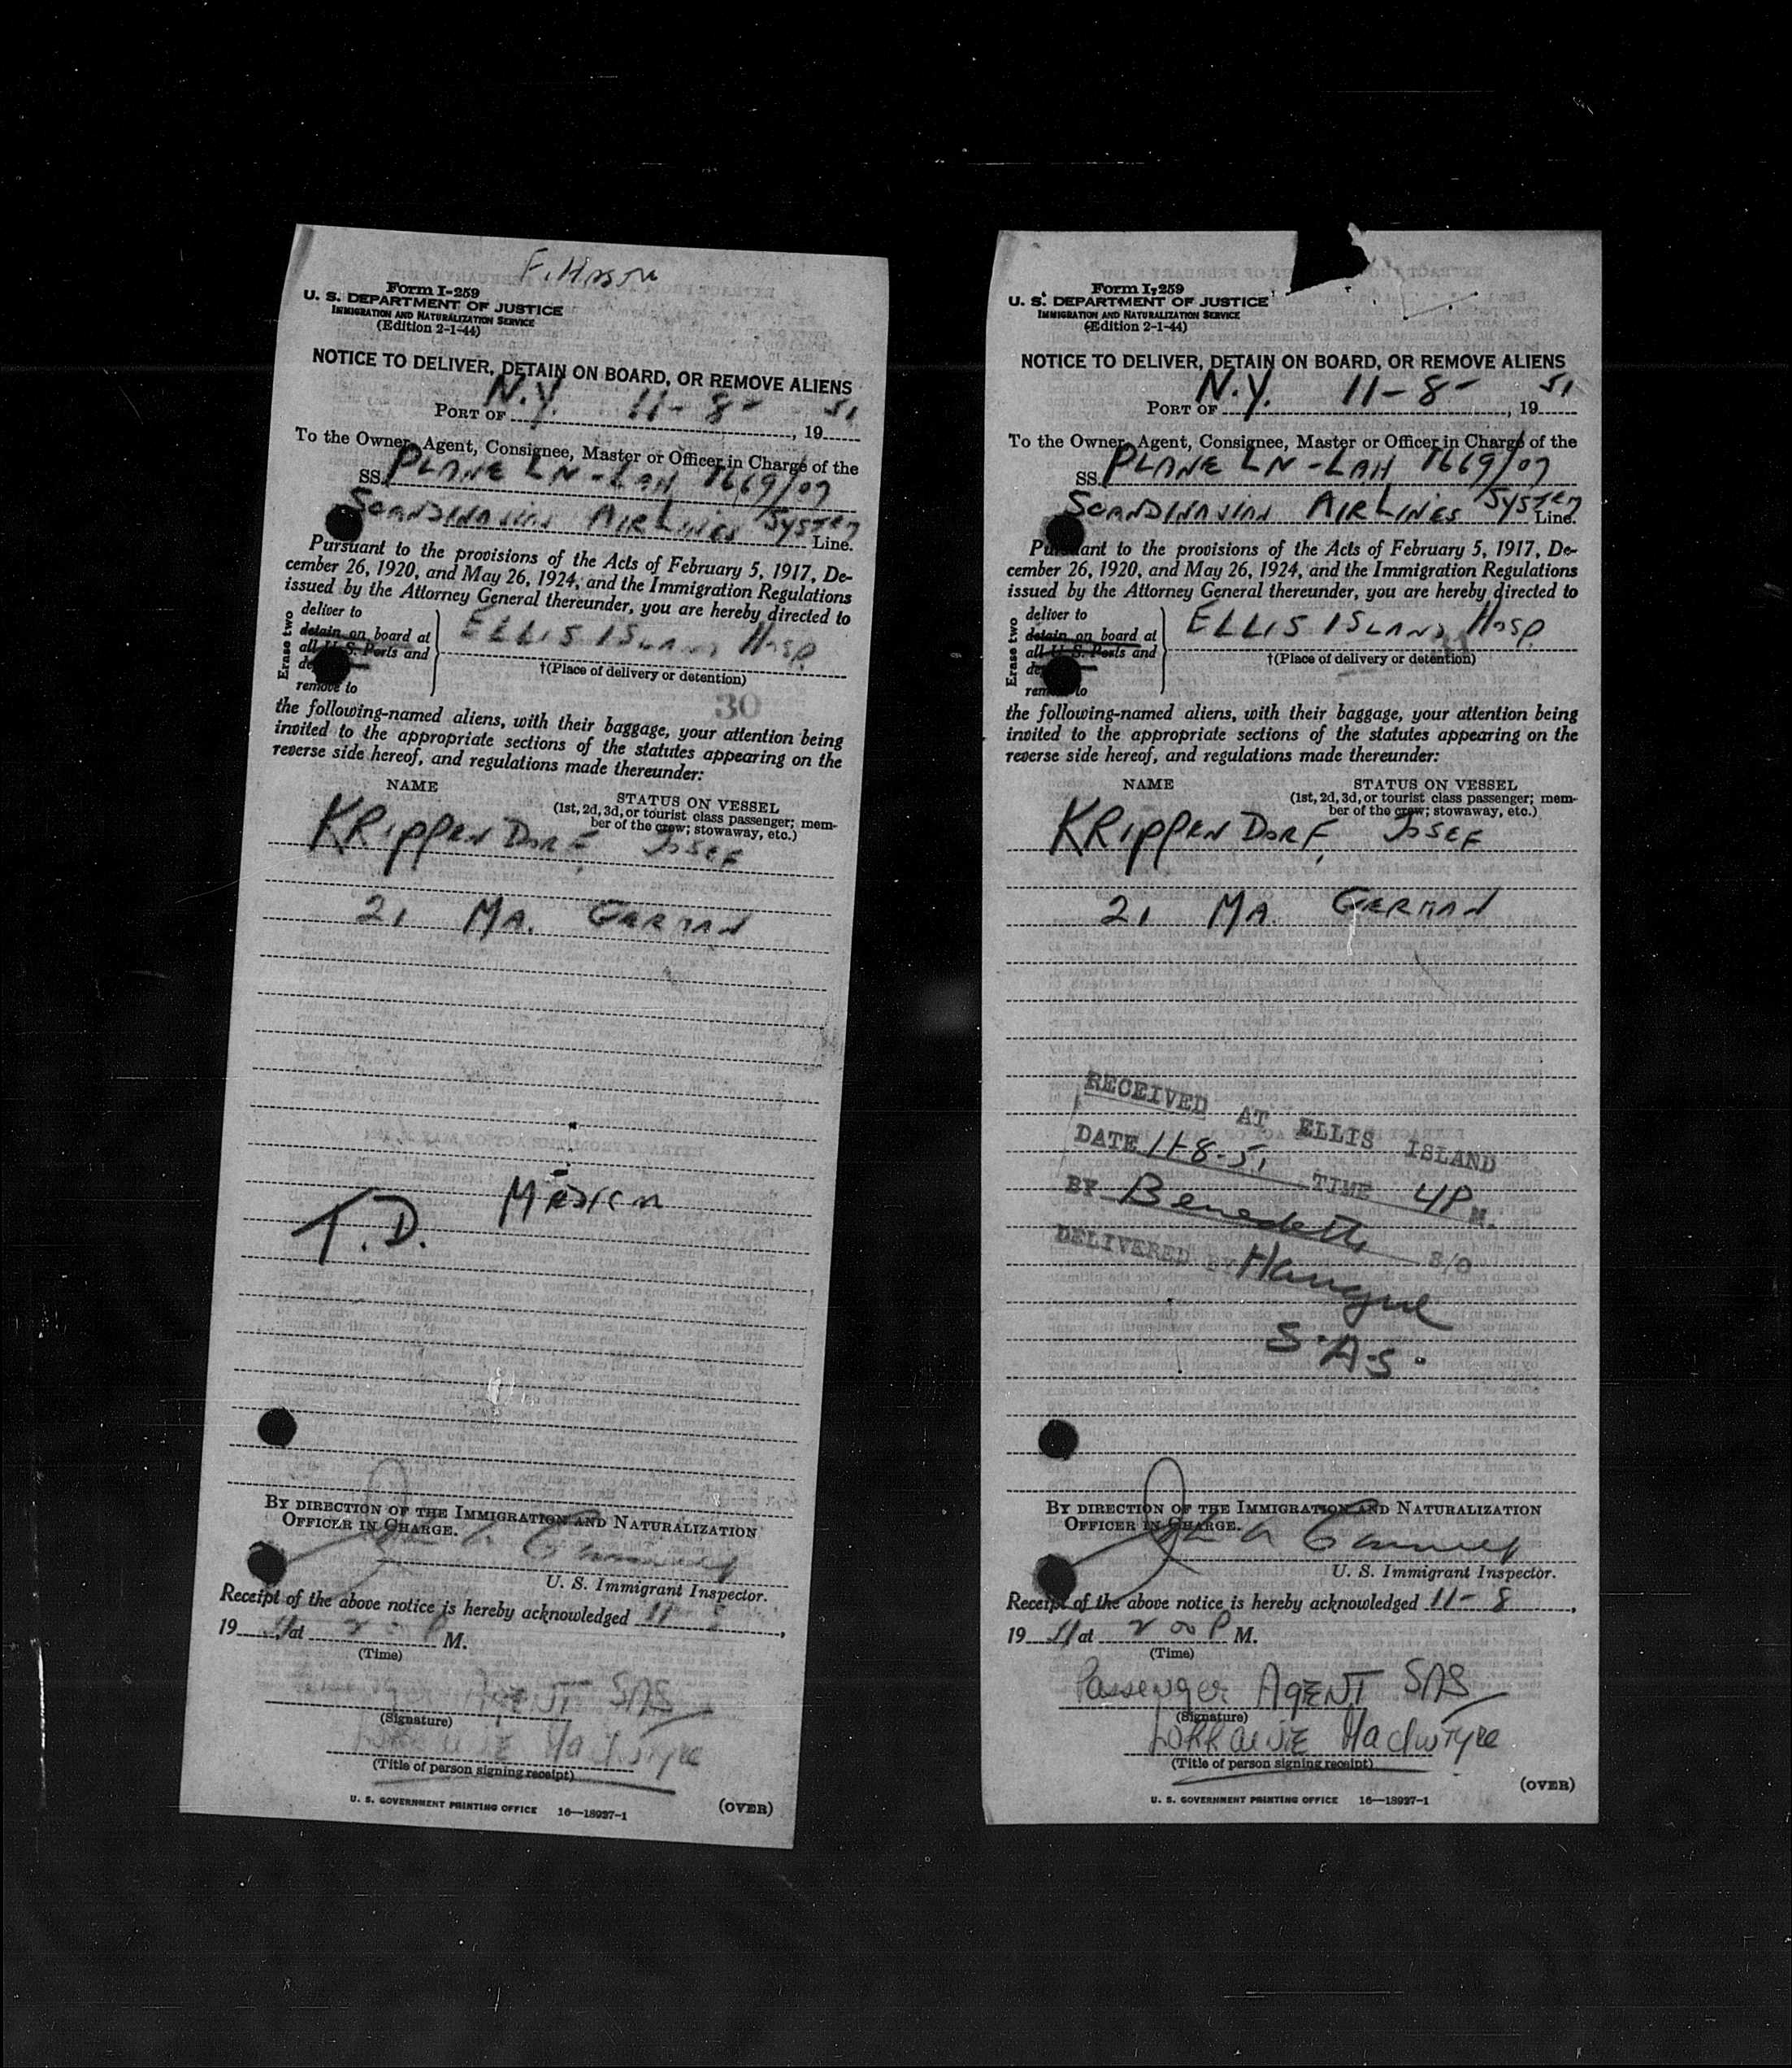 Form I-259
U. S. DEPARTMENT OF JUSTICE
IMMIGRATION AND NATURALIZATION SERVICE
(Edition 2-1-44)
NOTICE TO DELIVER, DETAIN ON BOARD, OR REMOVE ALIENS
PORT OF N.Y. 11-8-, 1951
To the Owner, Agent, Consignee, Master or Officer in Charge of the
SS. PLANE LN-LAH 1669/07
SCANDINAVIAN AIRLINES SYSTEM Line.
Pursuant to the provisions of the Acts of February 5, 1917, De-
cember 26, 1920, and May 26, 1924, and the Immigration Regulations
issued by the Attorney General thereunder, you are hereby directed to
Erase two
deliver to
detain on board at
all U. S. Ports and
remove to
ELLIS ISLAND HOSP.
†(Place of delivery or detention)
30
the following-named aliens, with their baggage, your attention being
invited to the appropriate sections of the statutes appearing on the
reverse side hereof, and regulations made thereunder:
NAME
STATUS ON VESSEL
(1st, 2d, 3d, or tourist class passenger; mem-
ber of the crew; stowaway, etc.)
KRIPPENDORF, JOSEF
21 MA. GERMAN
T.D.
BY DIRECTION OF THE IMMIGRATION AND NATURALIZATION
OFFICER IN CHARGE.
U. S. Immigrant Inspector.
Receipt of the above notice is hereby acknowledged 11-8,
1951 at 2 00 P M.
(Time)
Passenger AGENT SAS
(Signature)
LORRAINE MacIntyre
(Title of person signing receipt)
U. S. GOVERNMENT PRINTING OFFICE 16—18927-1
(OVER)
Form I-259
U. S. DEPARTMENT OF JUSTICE
IMMIGRATION AND NATURALIZATION SERVICE
(Edition 2-1-44)
NOTICE TO DELIVER, DETAIN ON BOARD, OR REMOVE ALIENS
PORT OF N.Y. 11-8-, 1951
To the Owner, Agent, Consignee, Master or Officer in Charge of the
SS. PLANE LN-LAH 1669/07
SCANDINAVIAN AIRLINES SYSTEM Line.
Pursuant to the provisions of the Acts of February 5, 1917, De-
cember 26, 1920, and May 26, 1924, and the Immigration Regulations
issued by the Attorney General thereunder, you are hereby directed to
Erase two
deliver to
detain on board at
all U. S. Ports and
remove to
ELLIS ISLAND HOSP.
†(Place of delivery or detention)
the following-named aliens, with their baggage, your attention being
invited to the appropriate sections of the statutes appearing on the
reverse side hereof, and regulations made thereunder:
NAME
STATUS ON VESSEL
(1st, 2d, 3d, or tourist class passenger; mem-
ber of the crew; stowaway, etc.)
KRIPPENDORF, JOSEF
21 MA. GERMAN
RECEIVED AT ELLIS ISLAND
DATE 11-8-51 TIME 4P M.
BY
DELIVERED BY
S.A.S.
BY DIRECTION OF THE IMMIGRATION AND NATURALIZATION
OFFICER IN CHARGE.
U. S. Immigrant Inspector.
Receipt of the above notice is hereby acknowledged 11-8,
1951 at 2 00 P M.
(Time)
Passenger AGENT SAS
(Signature)
LORRAINE MacIntyre
(Title of person signing receipt)
(OVER)
U. S. GOVERNMENT PRINTING OFFICE 16—18927-1